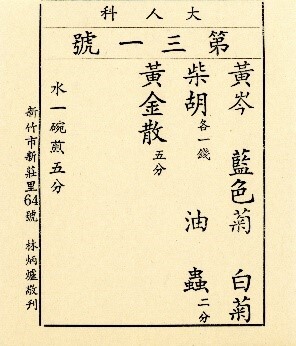 大人科
第三一號
黃岑 藍色菊 白菊
柴胡各一錢 油蟲二分
黃金散五分
水一碗煎五分
新竹市新莊里64號 林炳爐敬刊